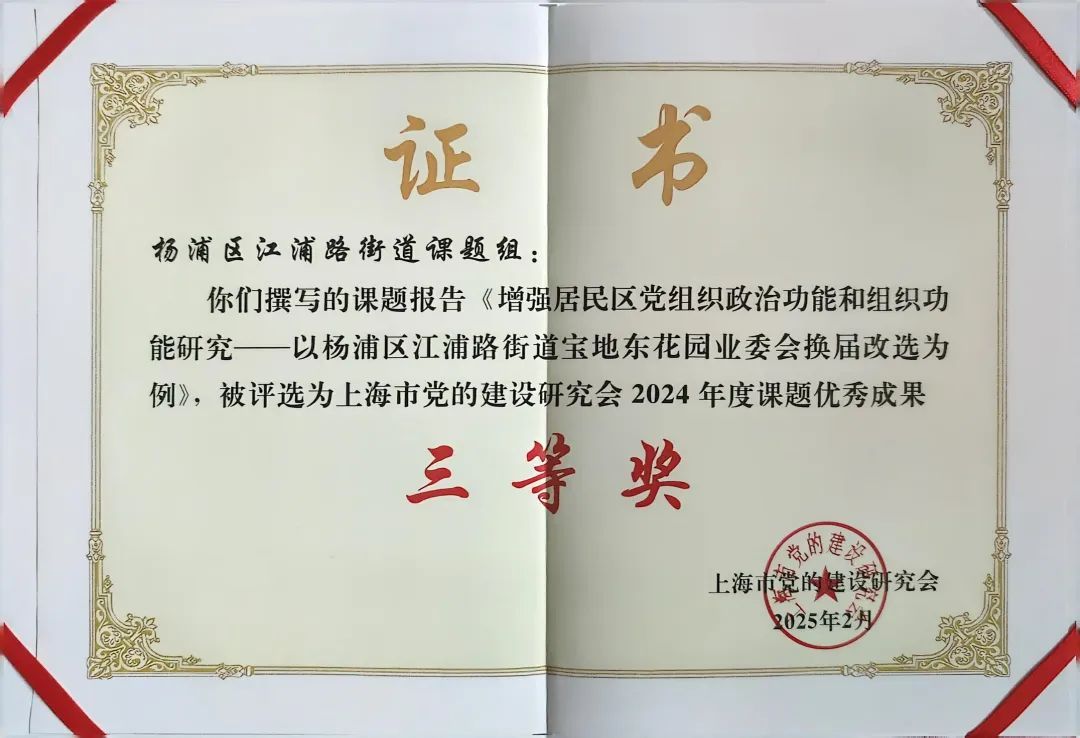 证书
杨浦区江浦路街道课题组：
你们撰写的课题报告《增强居民区党组织政治功能和组织功
能研究——以杨浦区江浦路街道宝地东花园业委会换届改选为
例》，被评选为上海市党的建设研究会 2024 年度课题优秀成果
三等奖
上海市党的建设研究会
上海市党的建设研究会
2025年2月